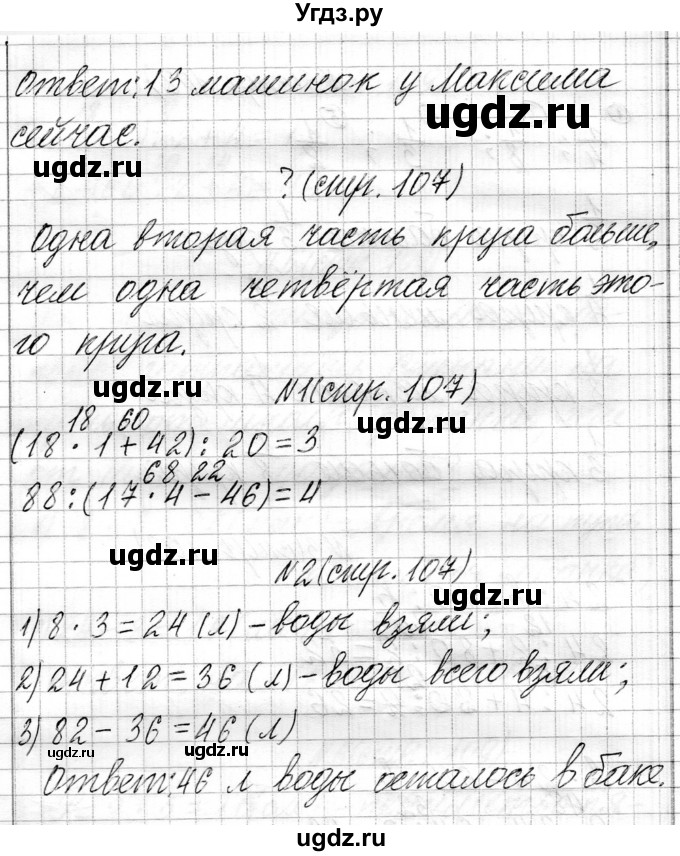 Угдз.ру
Ответ: 13 машинок у Максима
ugdz.ru
сейчас.
ugdz.ru
? (стр. 107)
Одна вторая часть круга больше,
чем одна четвёртая часть это-
го круга.
ugdz.ru
N1 (стр. 107)
ugdz.ru
18 60
(18 · 1 + 42) : 20 = 3
68 22
88 : (17 · 4 - 46) = 4
ugdz.ru
N2 (стр. 107)
ugdz.ru
1) 8 · 3 = 24 (л) - воды взяли;
2) 24 + 12 = 36 (л) - воды всего взяли;
3) 82 - 36 = 46 (л)
ugdz.ru
ugdz.ru
ugdz.ru
Ответ: 46 л воды осталось в баке.
ugdz.ru